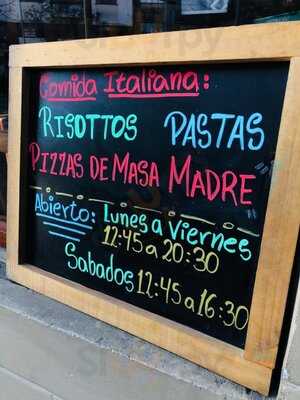 Comida Italiana:
RISOTTOS PASTAS
PIZZAS DE MASA MADRE
Abierto: Lunes a Viernes
12:45 a 20:30
Sabados 12:45 a 16:30